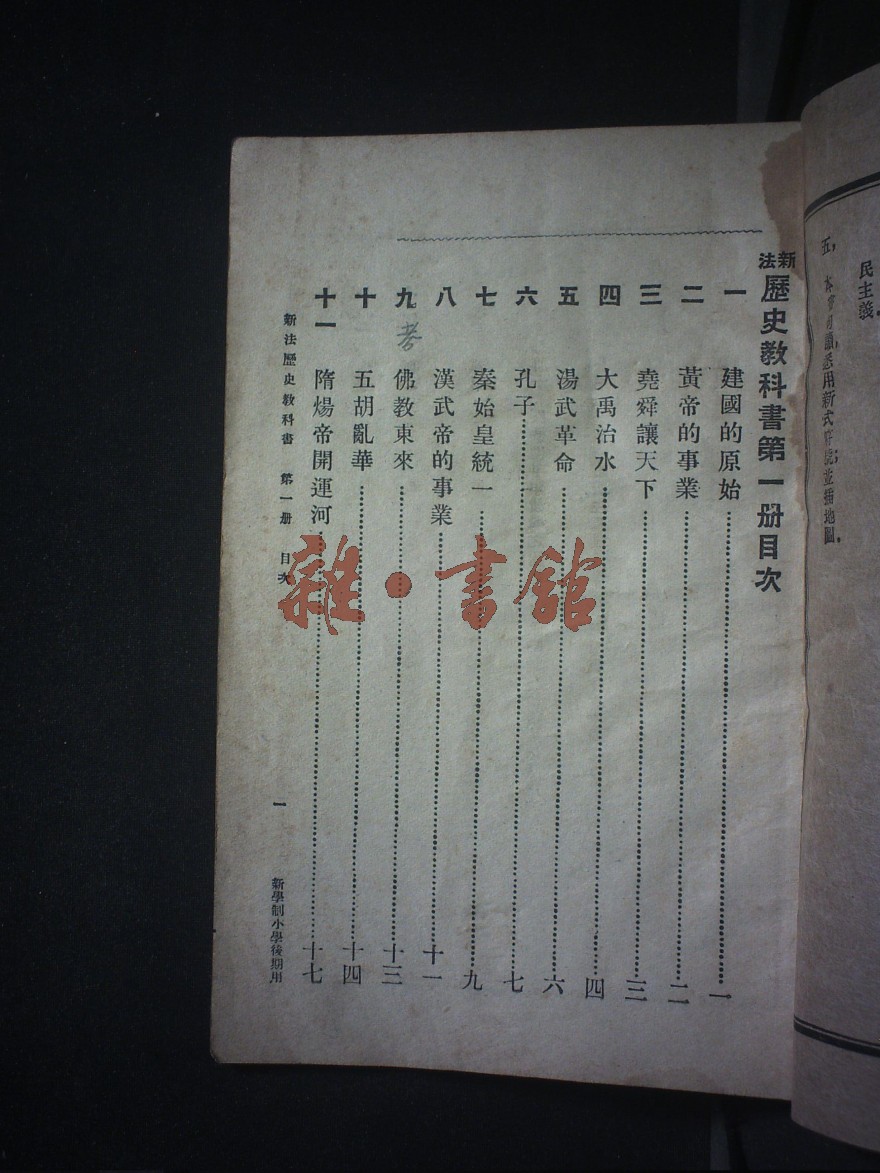 民主義。
五、
新法歷史教科書第一册目次
一 建國的原始 一
二 黃帝的事業 二
三 堯舜讓天下 三
四 大禹治水 四
五 湯武革命 六
六 孔子 七
七 秦始皇統一 九
八 漢武帝的事業 十一
九 佛教東來 十三
十 五胡亂華 十四
十一 隋煬帝開運河 十七
新法歷史教科書 第一册 目次 一 新學制小學後期用
雜·書館